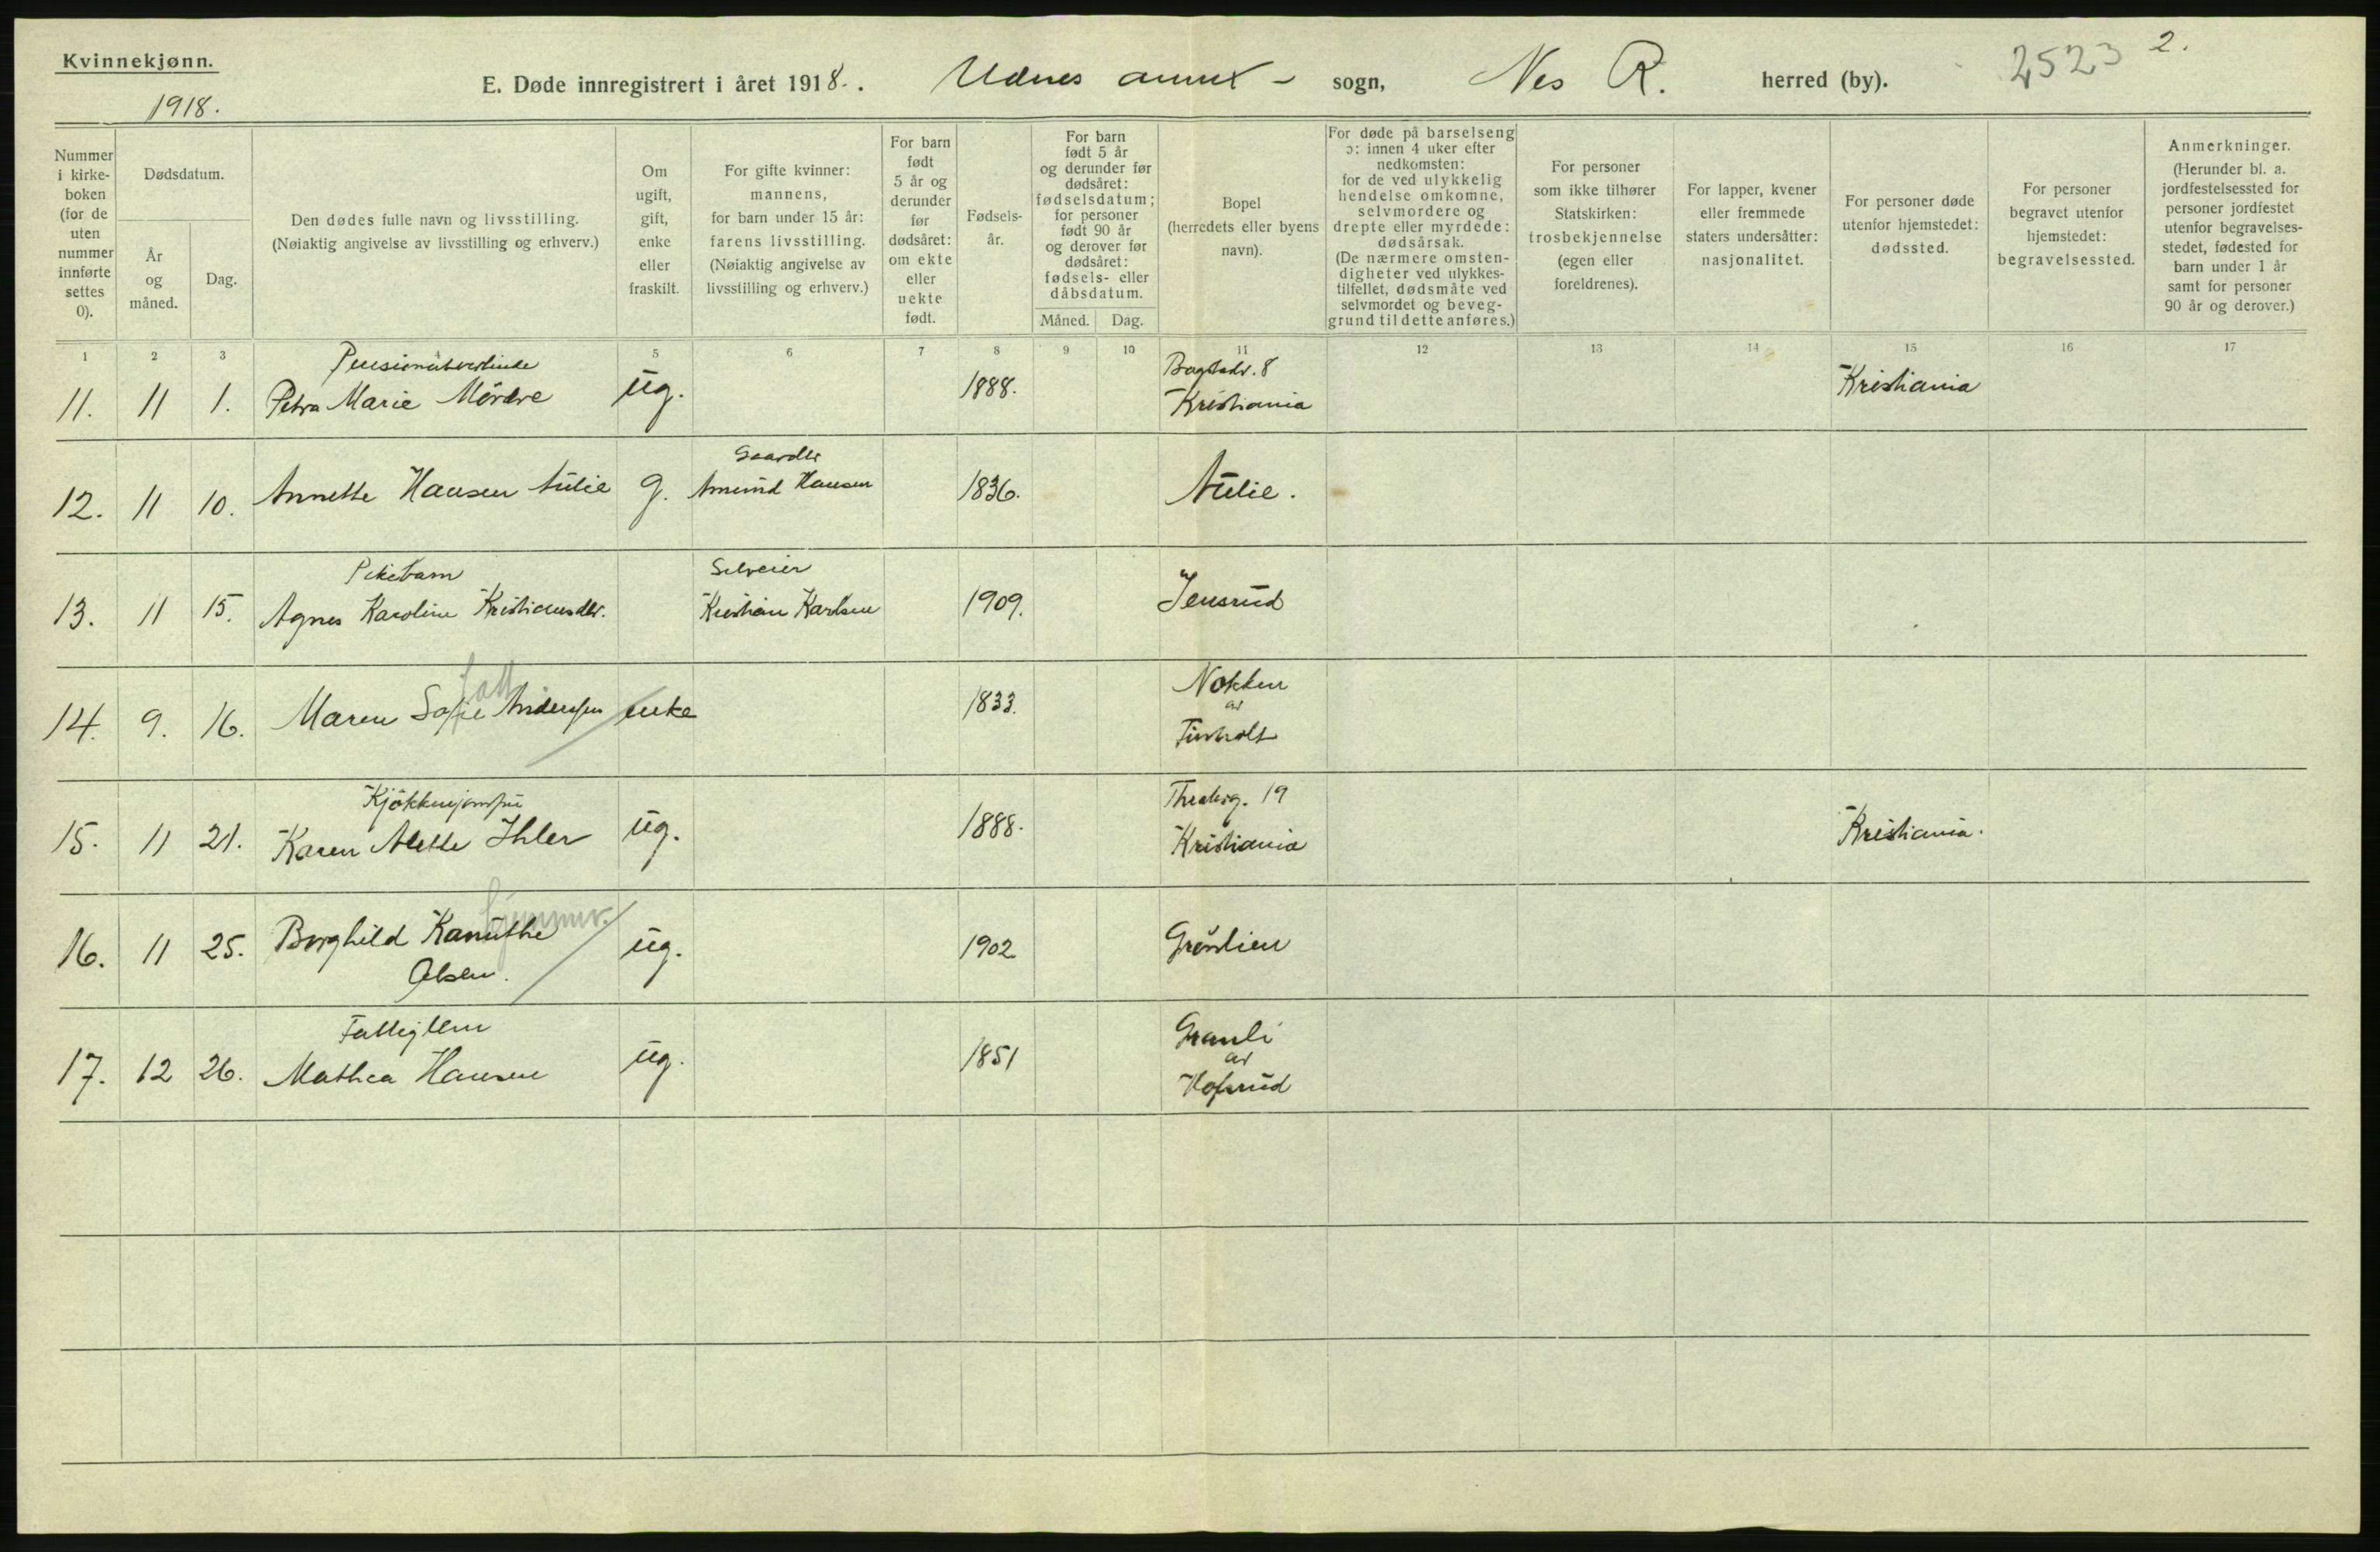 Kvinnekjønn.
1918.
E. Døde innregistrert i året 1918. Udnes annex - sogn, Nes R. herred (by).
2523 2.
Nummer i kirke-boken (for de uten nummer innførte settes 0).
Dødsdatum.
År og måned.
Dag.
Den dødes fulle navn og livsstilling. (Nøiaktig angivelse av livsstilling og erhverv.)
Om ugift, gift, enke eller fraskilt.
For gifte kvinner: mannens, for barn under 15 år: farens livsstilling. (Nøiaktig angivelse av livsstilling og erhverv.)
For barn født 5 år og derunder før dødsåret: om ekte eller uekte født.
Fødsels-år.
For barn født 5 år og derunder før dødsåret: fødselsdatum; for personer født 90 år og derover før dødsåret: fødsels- eller dåbsdatum.
Måned. Dag.
Bopel (herredets eller byens navn).
For døde på barselseng ɔ: innen 4 uker efter nedkomsten: for de ved ulykkelig hendelse omkomne, selvmordere og drepte eller myrdede: dødsårsak. (De nærmere omsten-digheter ved ulykkes-tilfellet, dødsmåte ved selvmordet og beveg-grund til dette anføres.)
For personer som ikke tilhører Statskirken: trosbekjennelse (egen eller foreldrenes).
For lapper, kvener eller fremmede staters undersåtter: nasjonalitet.
For personer døde utenfor hjemstedet: dødssted.
For personer begravet utenfor hjemstedet: begravelsessted.
Anmerkninger. (Herunder bl. a. jordfestelsessted for personer jordfestet utenfor begravelses-stedet, fødested for barn under 1 år samt for personer 90 år og derover.)
1 2 3 5 6 7 8 9 10 11 12 13 14 15 16 17
Pensionatvertinde
11. 11 1. Petra Marie Mördre ug. 1888. Kristiania Kristiania
Gaardbr
12. 11 10. Annette Hansen Aulie g. Amund Hansen 1836. Aulie.
Pikebarn Selveier
13. 11 15. Agnes Karoline Kristiansdtr. Kristian Karlsen 1909. Jensrud
fatt
14. 9. 16. Maren Sofie Andersen enke 1833. Nokken
av
Kjökkenjomfru Theaterg. 19
15. 11 21. Karen Alette Ihler ug. 1888. Kristiania Kristiania.
hjemmev.
16. 11 25. Borghild Kanuthe ug. 1902 Gröndlien
Olsen.
Fattiglem Granli
av
17. 12 26. Mathea Hansen ug. 1851 Hofsrud